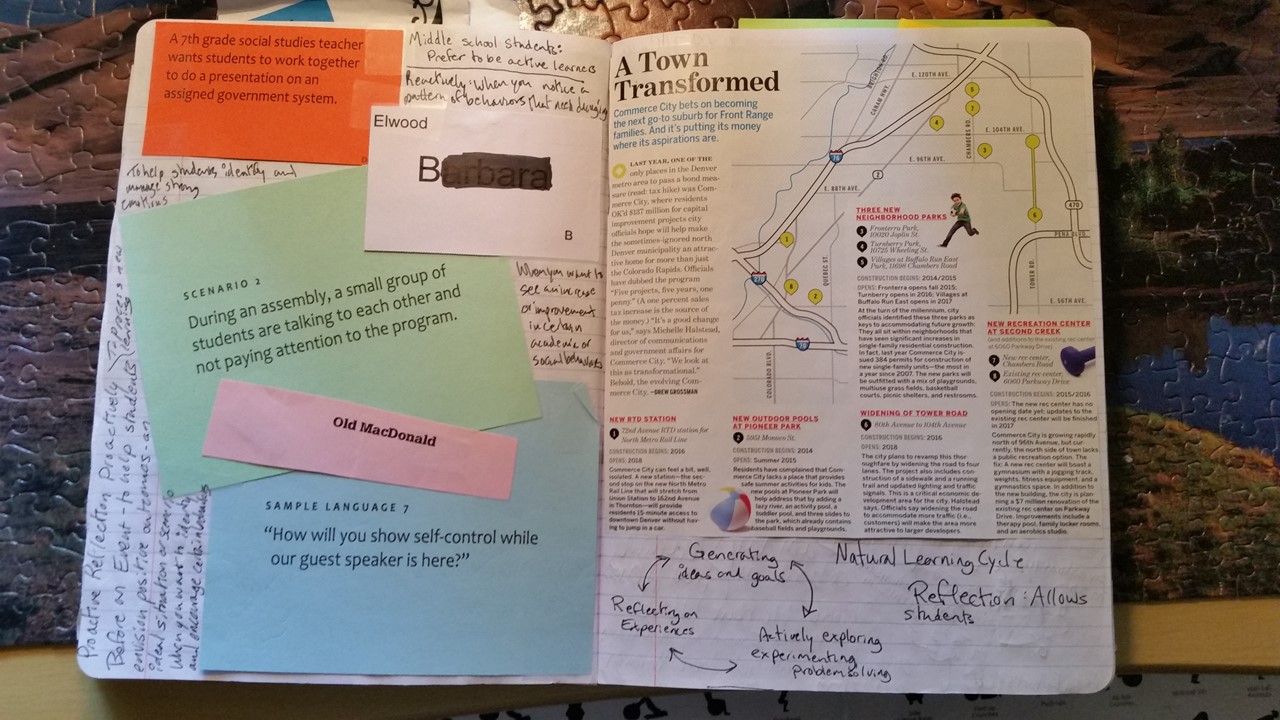 A 7th grade social studies teacher
wants students to work together
to do a presentation on an
assigned government system.
Middle school students:
Prefer to be active learners
Reactively: When you notice a
pattern of behaviors that need
To help students identify and
manage strong
emotions
Elwood
Barbara
B
SCENARIO 2
During an assembly, a small group of
students are talking to each other and
not paying attention to the program.
When you want to
see an increase
or improvement
in certain
academic or
social behaviors
Old MacDonald
SAMPLE LANGUAGE 7
“How will you show self-control while
our guest speaker is here?”
Proactive Reflection Proactively
Before an Event - to help students
envision positive outcomes
ideal situation or
when you want to
and encourage
A Town
Transformed
Commerce City bets on becoming
the next go-to suburb for Front Range
families. And it's putting its money
where its aspirations are.
LAST YEAR, ONE OF THE
only places in the Denver
metro area to pass a bond mea-
sure (read: tax hike) was Com-
merce City, where residents
OK'd $137 million for capital
improvement projects city
officials hope will help make
the sometimes-ignored north
Denver municipality an attrac-
tive home for more than just
the Colorado Rapids. Officials
have dubbed the program
“Five projects, five years, one
penny.” (A one percent sales
tax increase is the source of
the money.) “It's a good change
for us,” says Michelle Halstead,
director of communications
and government affairs for
Commerce City. “We look at
this as transformational.”
Behold, the evolving Com-
merce City. —DREW GROSSMAN
BRIGHTON RD.
CANAM HWY.
E. 120TH AVE.
CHAMBERS RD.
E. 104TH AVE.
E. 96TH AVE.
E. 88TH AVE.
QUEBEC ST.
COLORADO BLVD.
TOWER RD.
PENA BLVD.
E. 56TH AVE.
76
2
470
270
70
5
7
4
3
6
1
8
2
THREE NEW
NEIGHBORHOOD PARKS
3 Fronterra Park,
10020 Joplin St.
4 Turnberry Park,
10725 Wheeling St.
5 Villages at Buffalo Run East
Park, 11698 Chambers Road
CONSTRUCTION BEGINS: 2014/2015
OPENS: Fronterra opens fall 2015;
Turnberry opens in 2016; Villages at
Buffalo Run East opens in 2017
At the turn of the millennium, city
officials identified these three parks as
keys to accommodating future growth:
They all sit within neighborhoods that
have seen significant increases in
single-family residential construction.
In fact, last year Commerce City is-
sued 384 permits for construction of
new single-family units—the most in
a year since 2007. The new parks will
be outfitted with a mix of playgrounds,
multiuse grass fields, basketball
courts, picnic shelters, and restrooms.
NEW RECREATION CENTER
AT SECOND CREEK
(and additions to the existing rec center
at 6060 Parkway Drive)
7 New rec center,
Chambers Road
8 Existing rec center,
6060 Parkway Drive
CONSTRUCTION BEGINS: 2015/2016
OPENS: The new rec center has no
opening date yet; updates to the
existing rec center will be finished
in 2017
Commerce City is growing rapidly
north of 96th Avenue, but cur-
rently, the north side of town lacks
a public recreation option. The
fix: A new rec center will boast a
gymnasium with a jogging track,
weights, fitness equipment, and a
gymnastics space. In addition to
the new building, the city is plan-
ning a $7 million renovation of the
existing rec center on Parkway
Drive. Improvements include a
therapy pool, family locker rooms,
and an aerobics studio.
NEW RTD STATION
1 72nd Avenue RTD station for
North Metro Rail Line
CONSTRUCTION BEGINS: 2016
OPENS: 2018
Commerce City can feel a bit, well,
isolated. A new station—the sec-
ond stop on the new North Metro
Rail Line that will stretch from
Union Station to 162nd Avenue
in Thornton—will provide
residents 15-minute access to
downtown Denver without hav-
ing to jump in a car.
NEW OUTDOOR POOLS
AT PIONEER PARK
2 5951 Monaco St.
CONSTRUCTION BEGINS: 2014
OPENS: Summer 2015
Residents have complained that Com-
merce City lacks a place that provides
safe summer activities for kids. The
new pools at Pioneer Park will
help address that by adding a
lazy river, an activity pool, a
toddler pool, and three slides to
the park, which already contains
baseball fields and playgrounds.
WIDENING OF TOWER ROAD
6 80th Avenue to 104th Avenue
CONSTRUCTION BEGINS: 2016
OPENS: 2018
The city plans to revamp this thor-
oughfare by widening the road to four
lanes. The project also includes con-
struction of a sidewalk and a running
trail and updated lighting and traffic
signals. This is a critical economic de-
velopment area for the city, Halstead
says. Officials say widening the road
to accommodate more traffic (i.e.,
customers) will make the area more
attractive to larger developers.
Generating
ideas and goals
Reflecting on
Experiences
Actively exploring
experimenting
problem solving
Natural Learning Cycle
Reflection: Allows
students